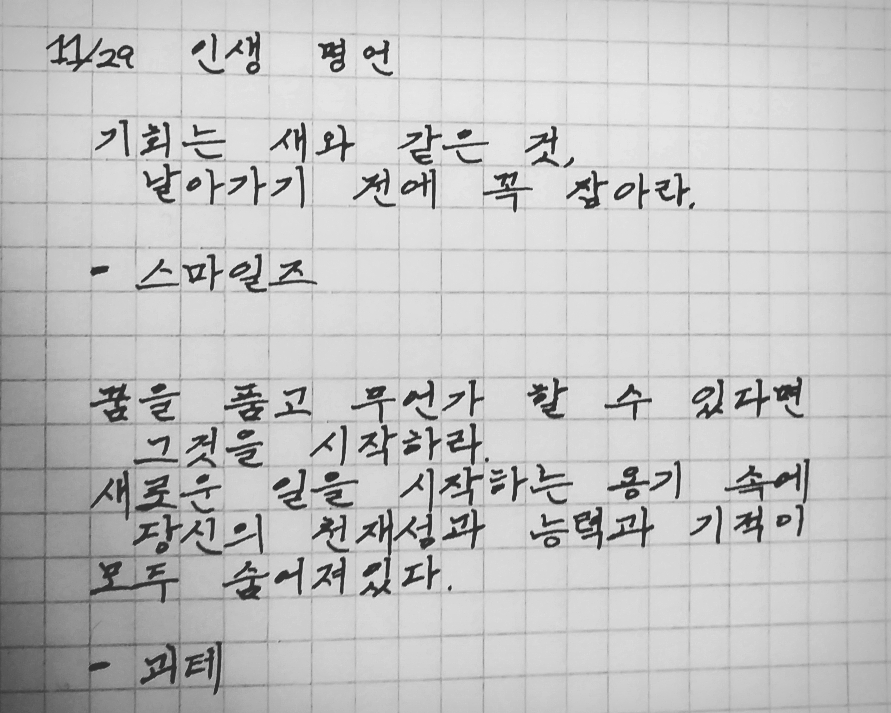 11/29 인생 명언
기회는 새와 같은 것,
날아가기 전에 꼭 잡아라.
- 스마일즈
꿈을 품고 무언가 할 수 있다면
그것을 시작하라.
새로운 일을 시작하는 용기 속에
당신의 천재성과 능력과 기적이
모두 숨어져있다.
- 괴테